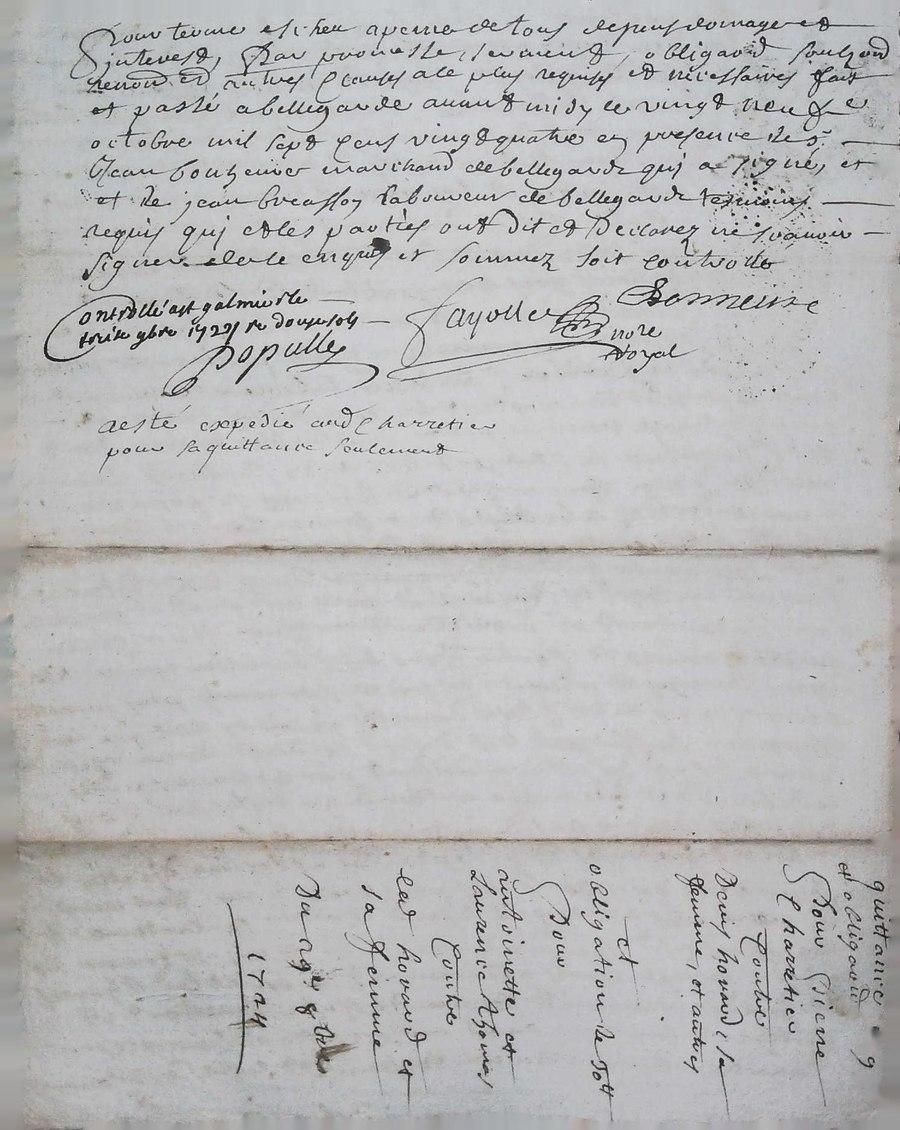 pour terme escheu apeine de tous despens domages et
interest, par promesse, serment, obligaõn soubzõn
renonõn et autres clauses ale plus requises et nécessaires fait
et passé a bellegarde auant midy le vingt neuf e
octobre mil sept cens vingt quatre en presence de Sr
Jean marchand de bellegarde qui a signé, et
et de jean breasson laboureur de bellegarde temoins
requis qui et les parties ont dit et declarez ne scauoir
signer de ce enquis et sommez soit controllé
Controllé a st galmier le
treize 9bre 1724 re douze sols
Fayolle
nore
Royal
Populle
a esté expedié aud Charretier
pour sa quittance seulement
quittance 9
et obligaõn
Pour Pierre
Charretier
Contre
Denis hovard sa
femme, et autres
et
obligation de 50lt
Pour
antoinette et
Laurence thomas
Contre
led hovard et
sa femme
Du 29e 8bre
1724